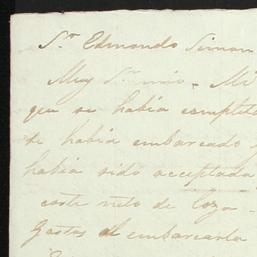 Sr. Edmundo Simon
Muy Sr. mio - Mi
que se habia completa
se habia embarcado
habia sido aceptada
coste neto de Loza -
Gastos al embarcarla